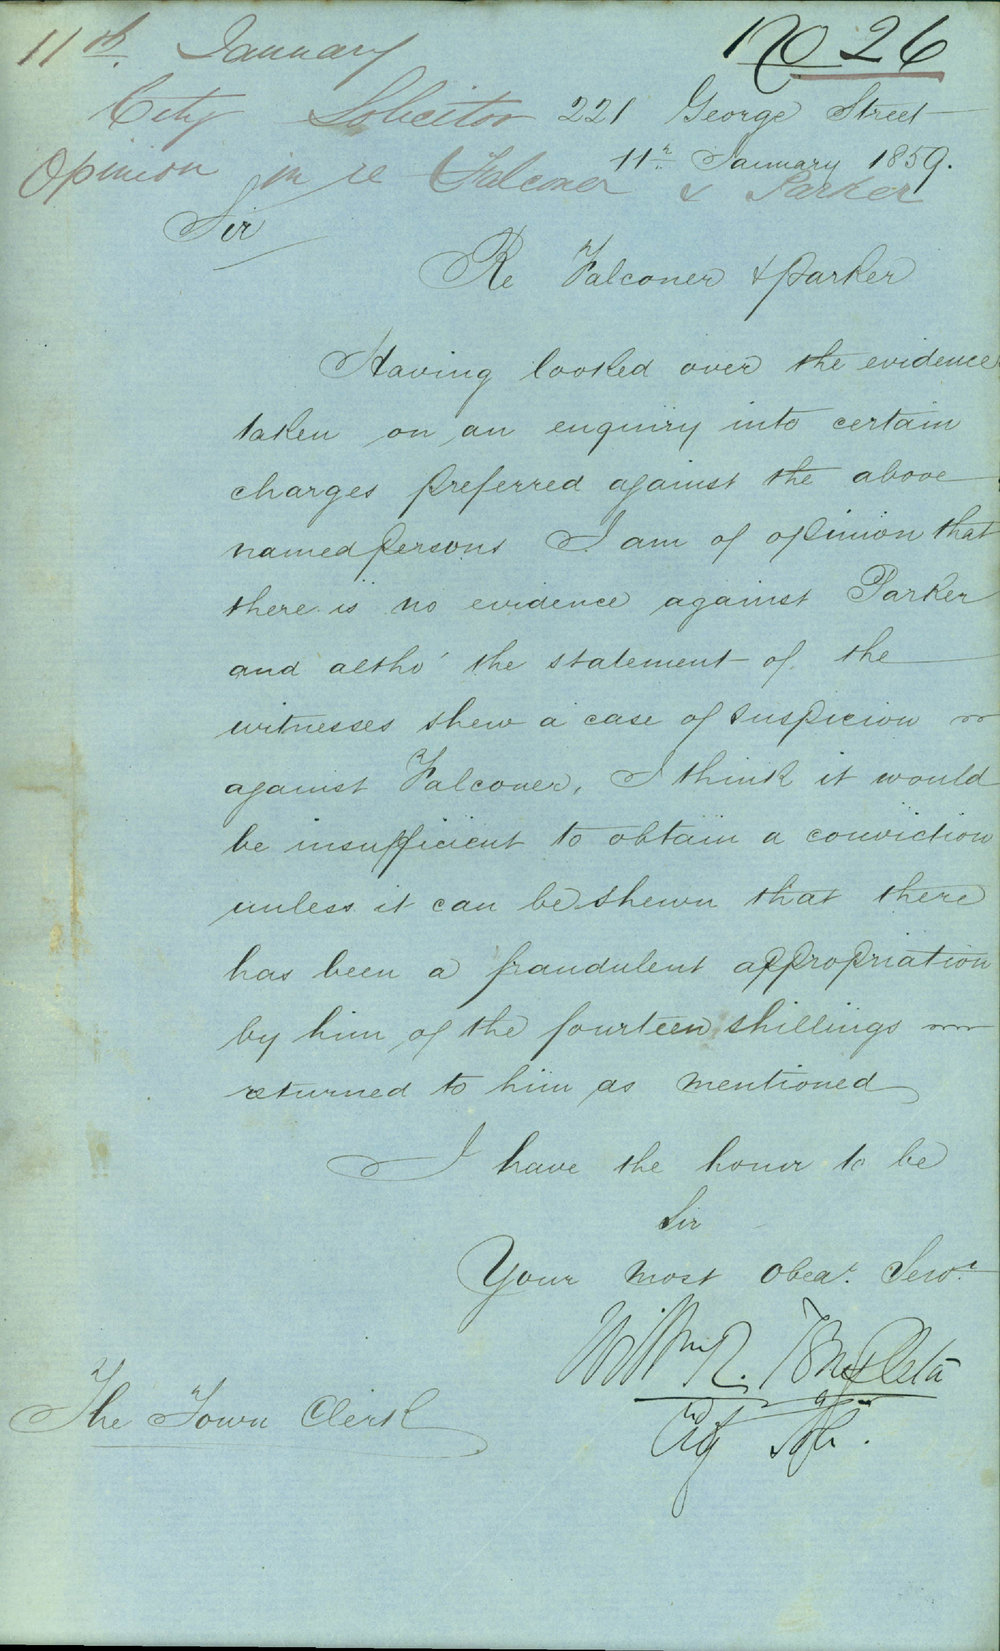 11th. January
No 26
City Solicitor
221 George Street
11th January 1859.
Opinion in re Falconer & Parker
Sir
Re Falconer & Parker
Having looked over the evidence
taken on an enquiry into certain
charges preferred against the above
named persons I am of opinion that
there is no evidence against Parker
and altho' the statement of the
witnesses shew a case of suspicion
against Falconer, I think it would
be insufficient to obtain a conviction
unless it can be shewn that there
has been a fraudulent appropriation
by him of the fourteen shillings
returned to him as mentioned
I have the honor to be
Sir
Your most obedt. Servt.
Willm R.
City Solr.
The Town Clerk